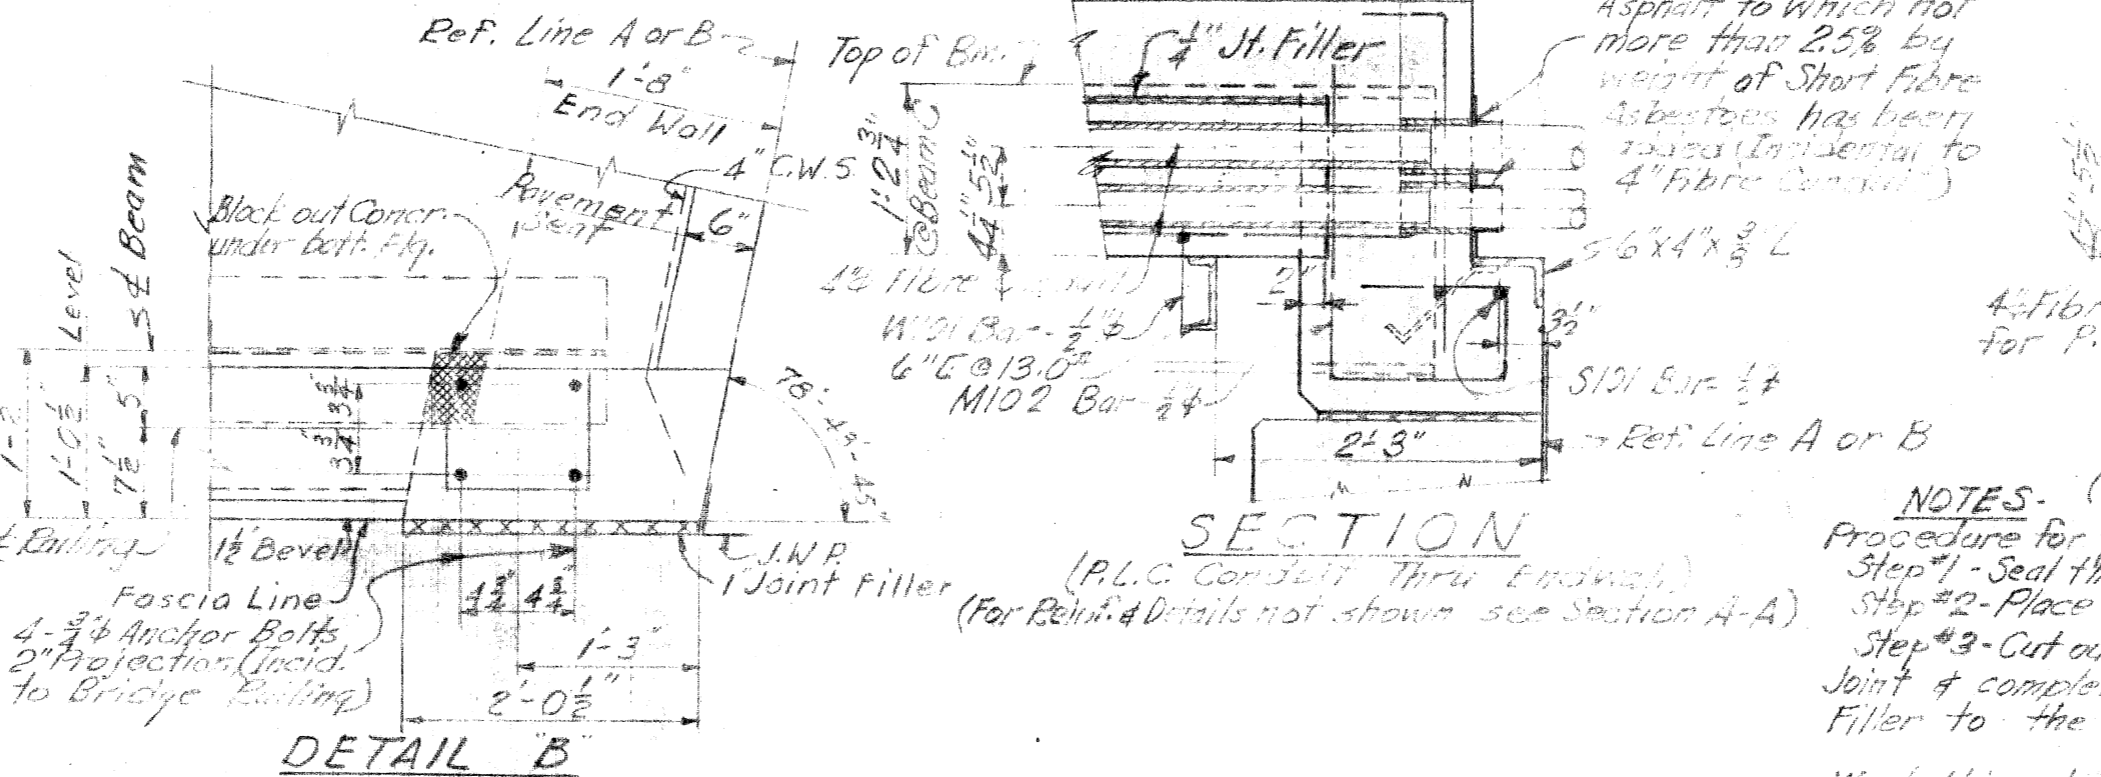 Ref. Line A or B
1'-8"
End Wall
4" C.W.S.
Pavement
Seat
6"
Block out Concr.
under bott. Flg.
S ₵ Beam
Level
5"
1'-0½"
7½"
3¾"
3¾"
78°-49'-45"
₵ Railing
1½ Bevel
J.W.P.
1" Joint Filler
Fascia Line
4¾" 4¾"
4-¾"ϕ Anchor Bolts
2" Projection (Incid.
to Bridge Railing)
1'-3"
2'-0½"
DETAIL "B"
Top of Bm.
¼" Jt. Filler
1'-2¾"
@Beam ₵
5½"
4¼"
Asphalt to which not
more than 25% by
weight of Short Fibre
Asbestoes has been
added (Incidental to
4" Fibre Conduit")
6"x4"x⅜" L
2"
3½"
Bar - ½"ϕ
6"[ @ 13.0#
M102 Bar ½ϕ
S101 Bar - ½ϕ
2'-3"
Ref. Line A or B
SECTION
(P.L.C. Conduit Thru Endwall)
(For Reinf. & Details not shown see Section A-A)
4" Fibr
for P.
NOTES-
Procedure for
Step #1 - Seal th
Step #2 - Place
Step #3 - Cut ou
Joint & comple
Filler to the